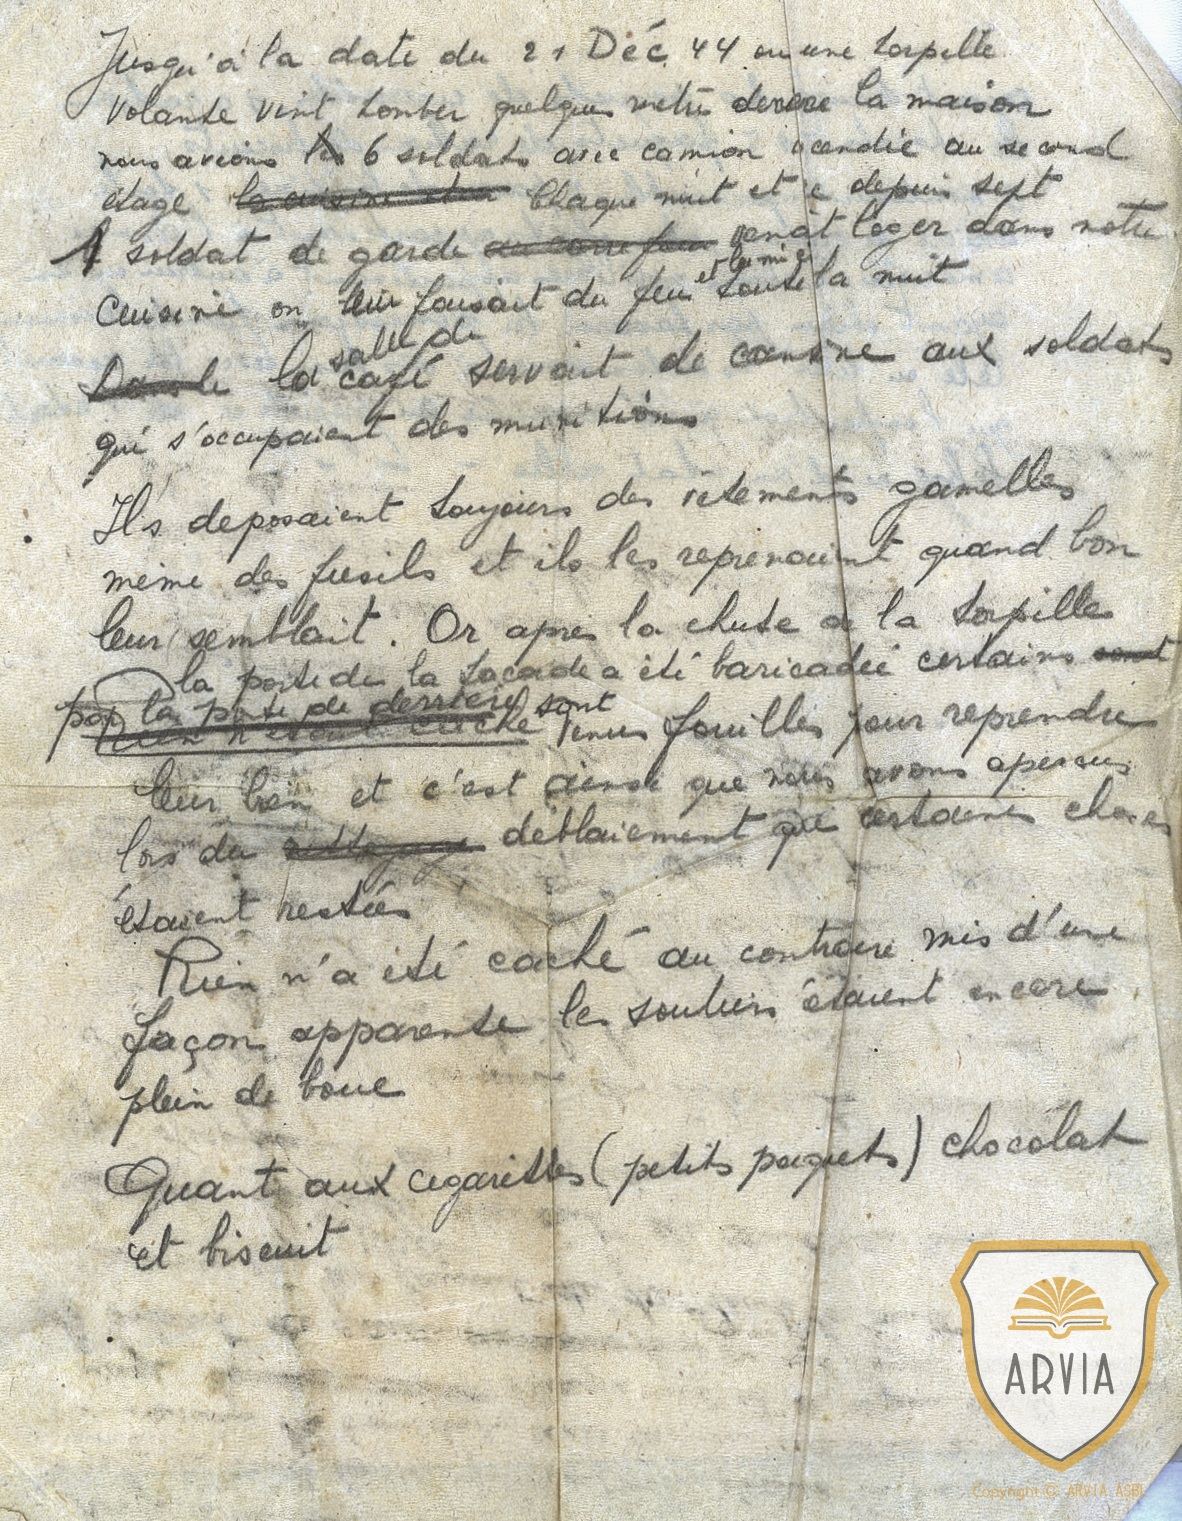 Jusqu'à la date du 21 Déc 44 ou une torpille
volante vint tomber quelques metres derriere la maison
nous avions les 6 soldats avec camion incendié au second
étage la cuisine etai Chaque nuit et ce depuis sept
1 soldat de garde au carrefour venait loger dans notre
cuisine on leur faisait du feu et lumiere toute la nuit
Dans le la salle de café servait de cantine aux soldats
qui s'occupaient des munitions
Ils deposaient toujours des vêtements gamelles
même des fusils et ils les reprenaient quand bon
leur semblait. Or apres la chute de la torpille
la porte de la facade a été baricadée certains sont
par la porte de derriere sont
Rien n'etait caché venus fouiller pour reprendre
leur bien et c'est ainsi que nous avons apercus
lors du déblaiement que certaines choses
étaient restées
Rien n'a été caché au contraire mis d'une
façon apparente les souliers étaient encore
plein de boue
Quant aux cigarettes (petits paquets) chocolat
et biscuit
ARVIA
Copyright © ARVIA ASBL